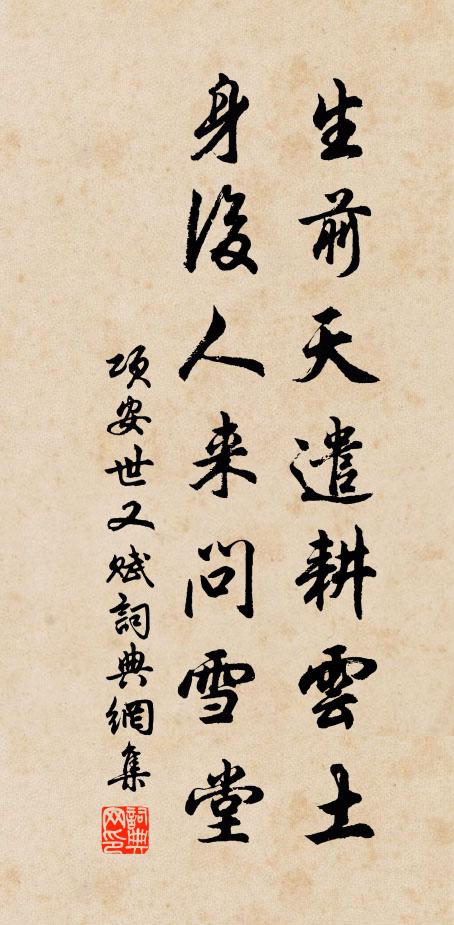 生前天遣耕雲土
身後人来問雪堂
项安世又赋詞典網集
詞典网印